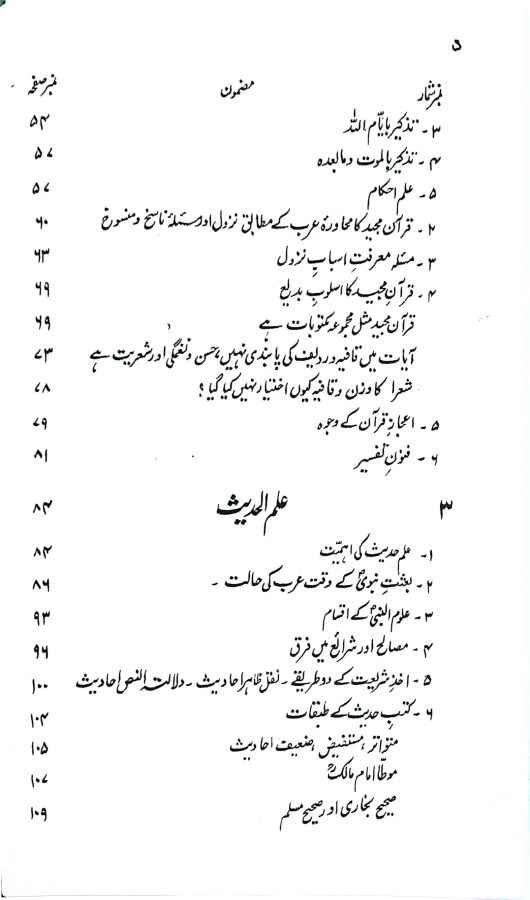 ۵
نمبر شمار مضمون نمبر صفحہ
۳ ۔ تذکیر بایّام اللہ ۵۴
۴ ۔ تذکیر بالموت و مابعدہ ۵۷
۵ ۔ علم احکام ۵۷
۲ ۔ قرآن مجید کا محاورۂ عرب کے مطابق نزول اور مسئلۂ ناسخ و منسوخ ۶۰
۳ ۔ مسئلہ معرفتِ اسبابِ نزول ۶۳
۴ ۔ قرآنِ مجید کا اسلوبِ بدیع ۶۹
قرآن مجید مثل مجموعہ مکتوبات ہے ۶۹
آیات میں قافیہ و ردیف کی پابندی نہیں، حسن و نغمگی اور شعریت ہے ۷۳
شعرا کا وزن و قافیہ کیوں اختیار نہیں کیا گیا؟ ۷۸
۵ ۔ اعجازِ قرآن کے وجوہ ۷۹
۶ ۔ فنونِ تفسیر ۸۱
۳ علم الحدیث ۸۴
۱۔ علم حدیث کی اہمیّت ۸۴
۲ ۔ بعثتِ نبویؐ کے وقت عرب کی حالت ۔ ۸۶
۳ ۔ علوم النبیؐ کے اقسام ۹۳
۴ ۔ مصالح اور شرائع میں فرق ۹۶
۵ ۔ اخذِ شریعت کے دو طریقے ۔ نقل ظاہر احادیث ۔ دلالت النص احادیث ۱۰۰
۶ ۔ کتبِ حدیث کے طبقات ۱۰۴
متواتر، مستفیض، ضعیف احادیث ۱۰۵
موطّا امام مالکؒ ۱۰۷
صحیح بخاری اور صحیح مسلم ۱۰۹